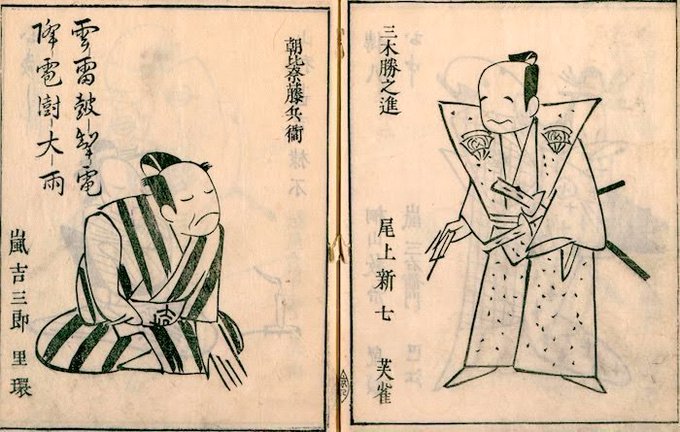 三木勝之進
尾上新七 芙雀
朝比奈藤兵衞
雲雷鼓掣電
降雹澍大雨
嵐吉三郎 里環